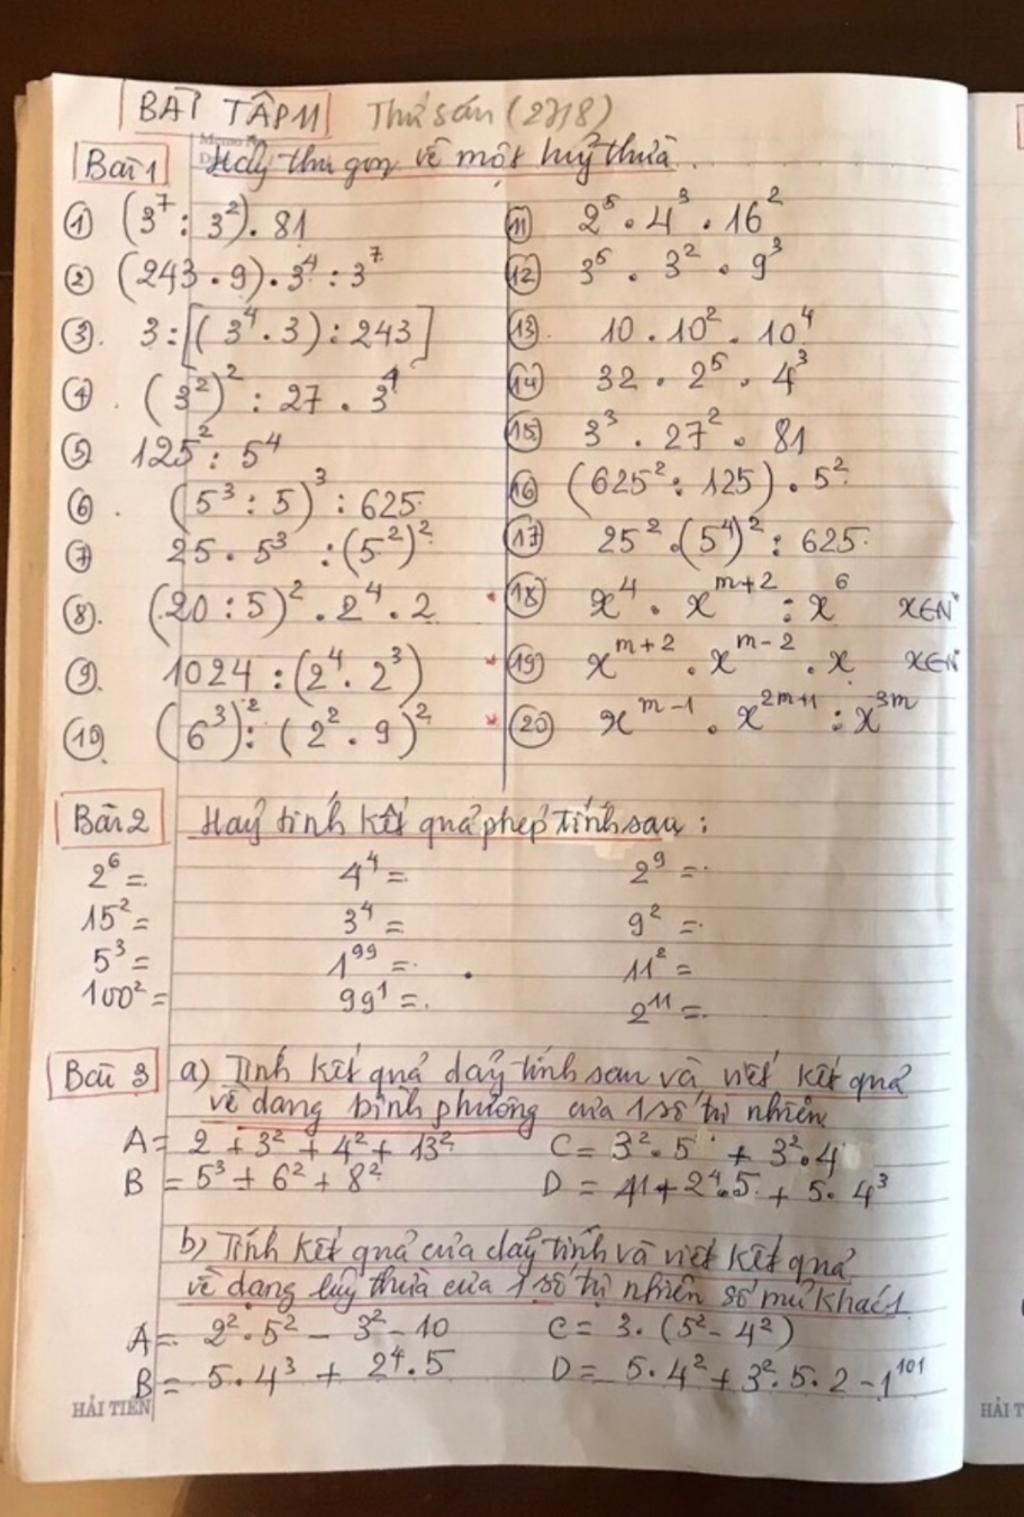 BÀI TẬP 11 Thứ sáu (27/8)
Bài 1 Hãy thu gọn về một luỹ thừa.
① (3⁷ : 3²) . 81
② (243 . 9) . 3⁴ : 3⁷
③. 3 : [(3⁴ . 3) : 243]
④. (3²)² : 27 . 3⁴
⑤ 125² : 5⁴
⑥. (5³ : 5)³ : 625
⑦ 25 . 5³ : (5²)²
⑧. (20 : 5)² . 2⁴ . 2
⑨. 1024 : (2⁴ . 2³)
⑩. (6³)² : (2² . 9)²
⑪ 2⁵ . 4³ . 16²
⑫ 3⁵ . 3² . 9³
⑬. 10 . 10² . 10⁴
⑭ 32 . 2⁵ . 4³
⑮ 3³ . 27² . 81
⑯ (625² : 125) . 5²
⑰ 25² . (5⁴)² : 625
⑱ x⁴ . xᵐ⁺² : x⁶ x∈N*
⑲ xᵐ⁺² . xᵐ⁻² . x x∈N*
⑳ xᵐ⁻¹ . x²ᵐ⁺¹ : x³ᵐ
Bài 2 Hãy tính kết quả phép tính sau :
2⁶ = 4⁴ = 2⁹ =
15² = 3⁴ = 9² =
5³ = 1⁹⁹ = 11² =
100² = 99¹ = 2¹¹ =
Bài 3 a) Tính kết quả dãy tính sau và viết kết quả
về dạng bình phương của 1 số tự nhiên
A = 2 + 3² + 4² + 13² C = 3² . 5 + 3² . 4
B = 5³ + 6² + 8² D = 41 + 2⁴ . 5 + 5 . 4³
b) Tính kết quả của dãy tính và viết kết quả
về dạng luỹ thừa của 1 số tự nhiên số mũ khác 1.
A = 2² . 5² - 3² - 10 C = 3 . (5² - 4²)
B = 5 . 4³ + 2⁴ . 5 D = 5 . 4² + 3² . 5 . 2 - 1¹⁰¹
HẢI TIẾN HẢI T